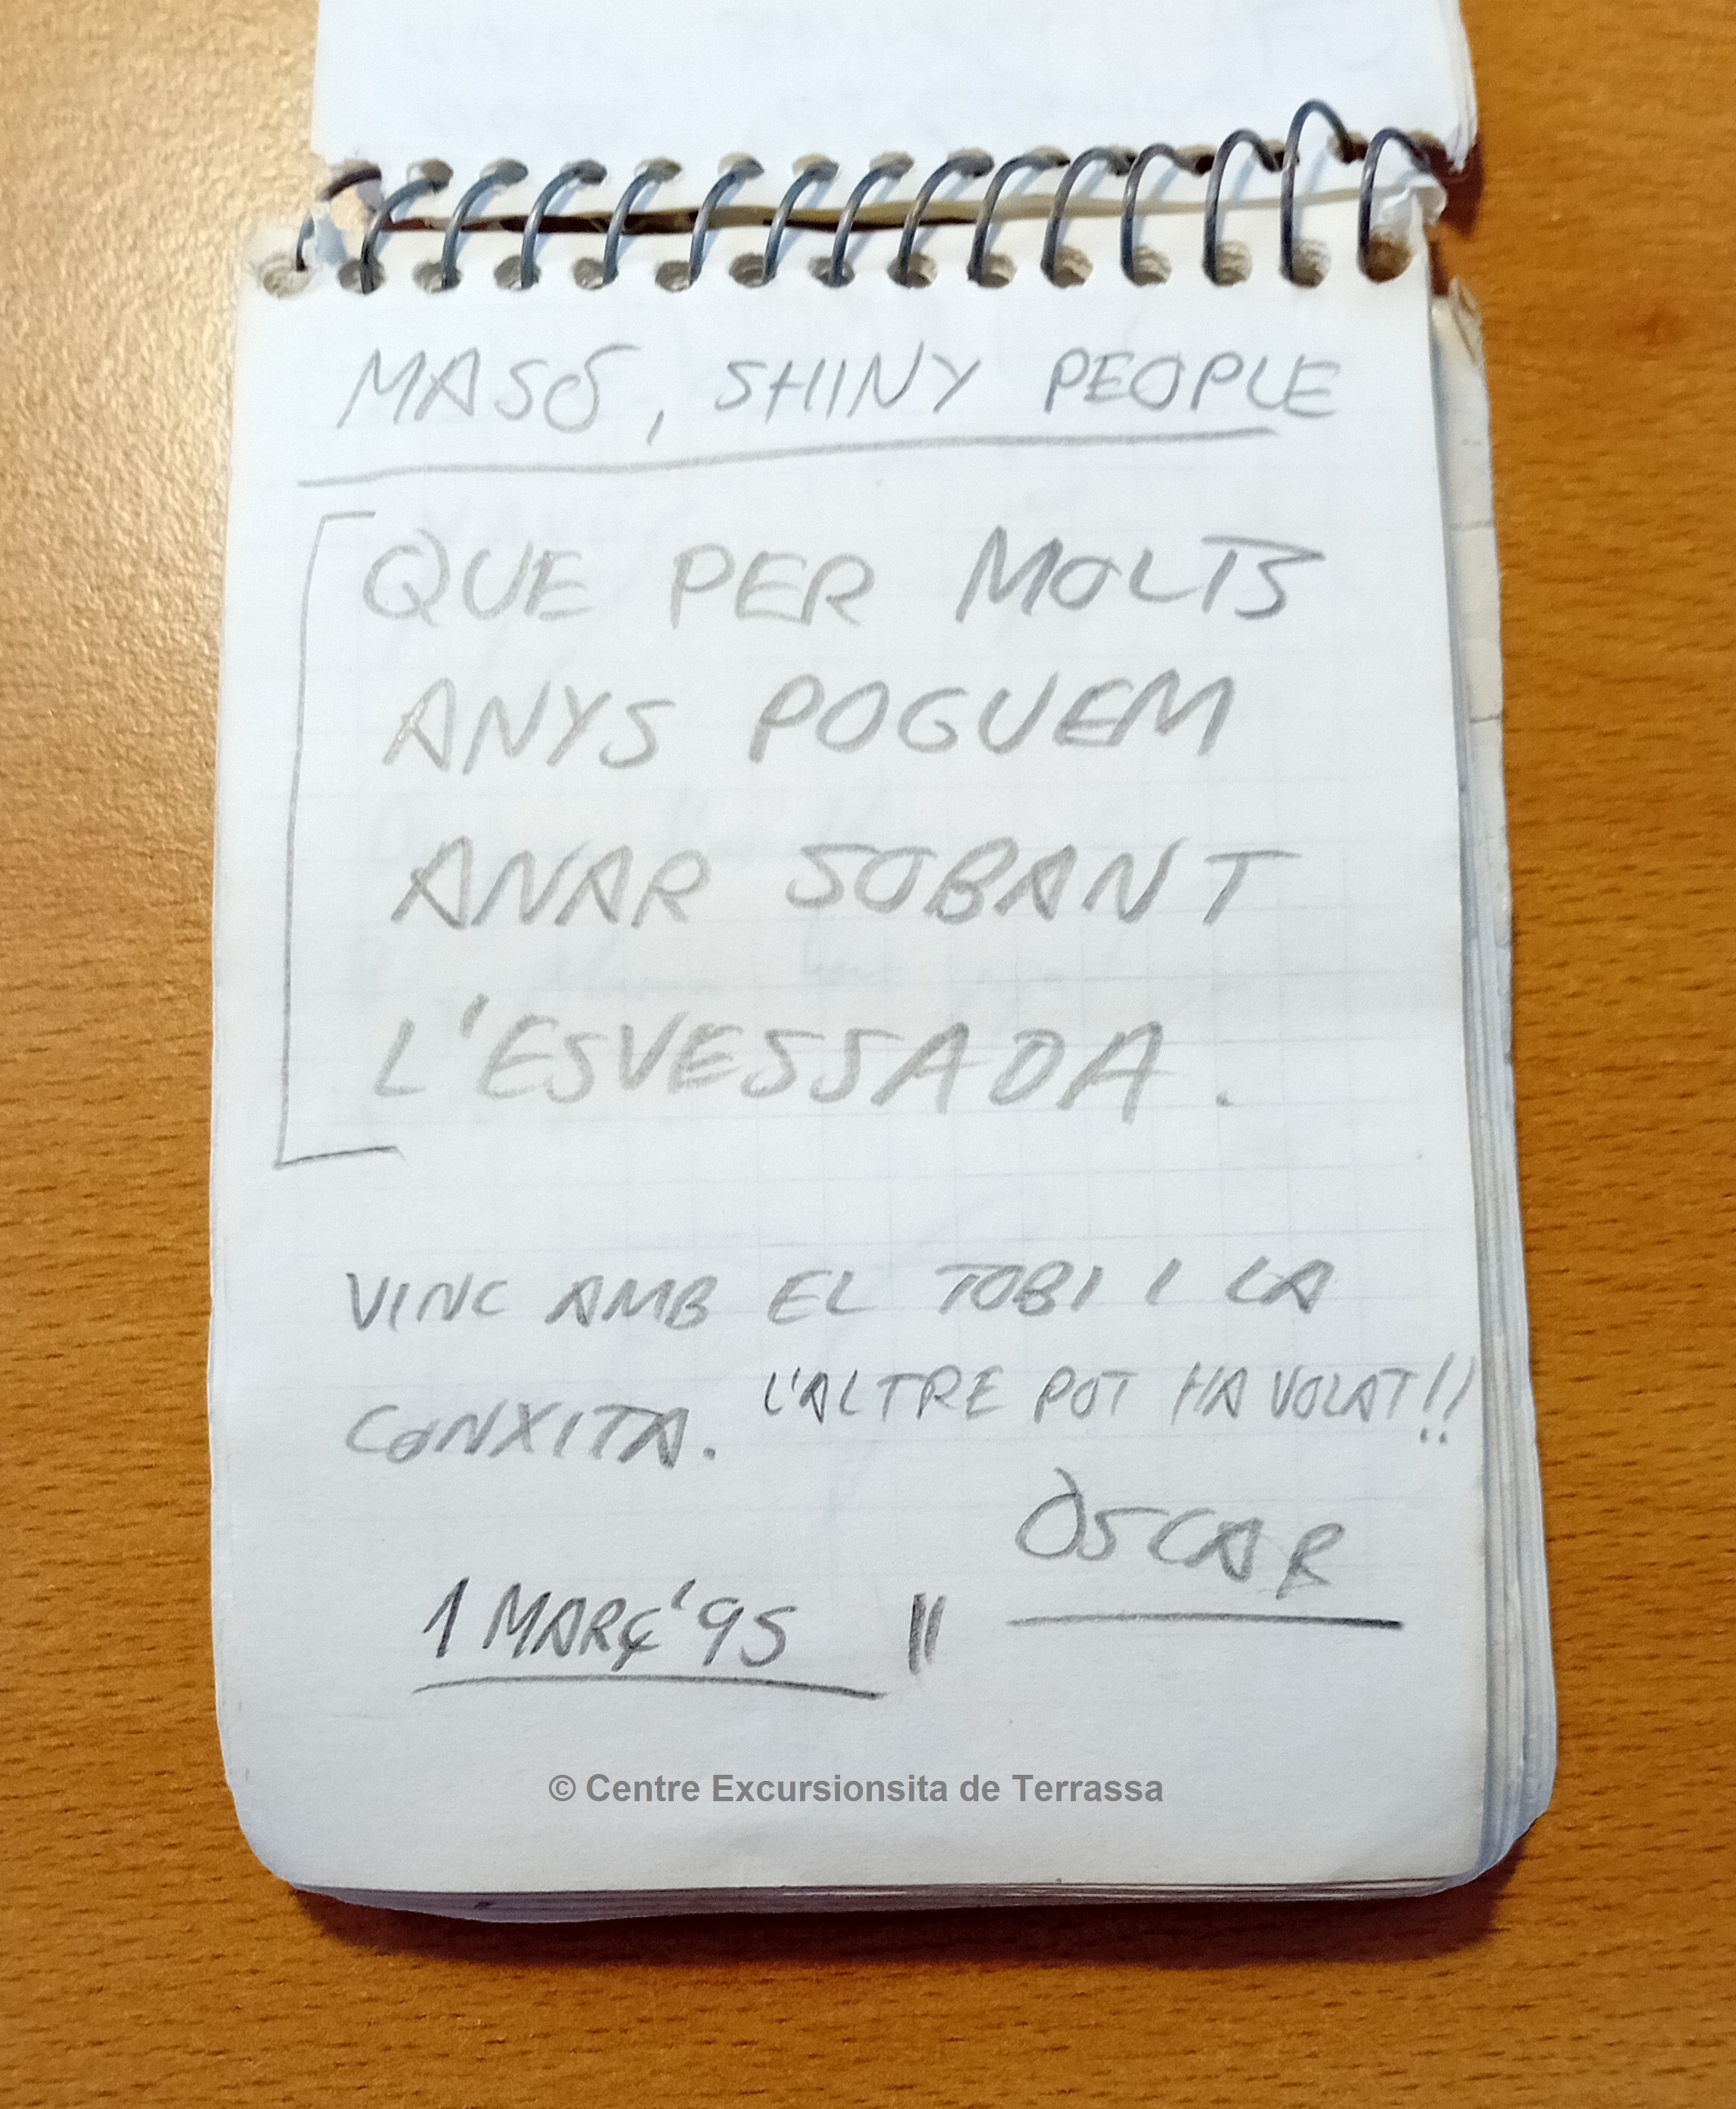 MASÓ, SHINY PEOPLE
QUE PER MOLTS
ANYS POGUEM
ANAR SOBANT
L'ESVESSADA.
VINC AMB EL TOBI I LA
CONXITA. L'ALTRE POT HA VOLAT!!
ÒSCAR
1 MARÇ '95
© Centre Excursionsita de Terrassa